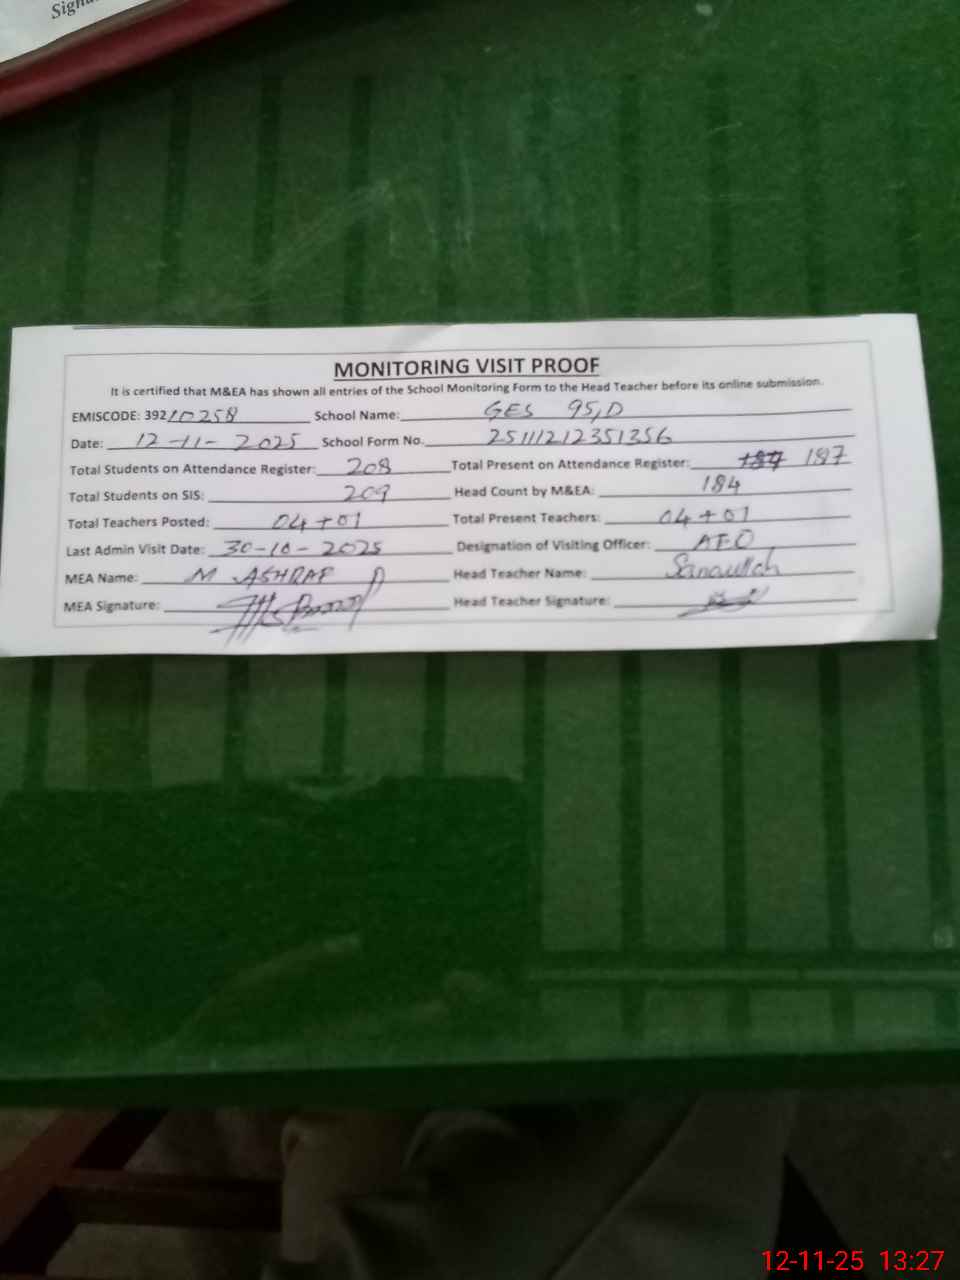 Sign
MONITORING VISIT PROOF
It is certified that M&EA has shown all entries of the School Monitoring Form to the Head Teacher before its online submission.
EMISCODE: 39210258 School Name: GES 95,D
Date: 12-11-2025 School Form No. 25111212351356
Total Students on Attendance Register: 208 Total Present on Attendance Register: 187
Total Students on SIS: 209 Head Count by M&EA: 184
Total Teachers Posted: 04+01 Total Present Teachers: 04+01
Last Admin Visit Date: 30-10-2025 Designation of Visiting Officer: AEO
MEA Name: M ASHRAF Head Teacher Name: Sanaullah
MEA Signature: Head Teacher Signature:
12-11-25 13:27